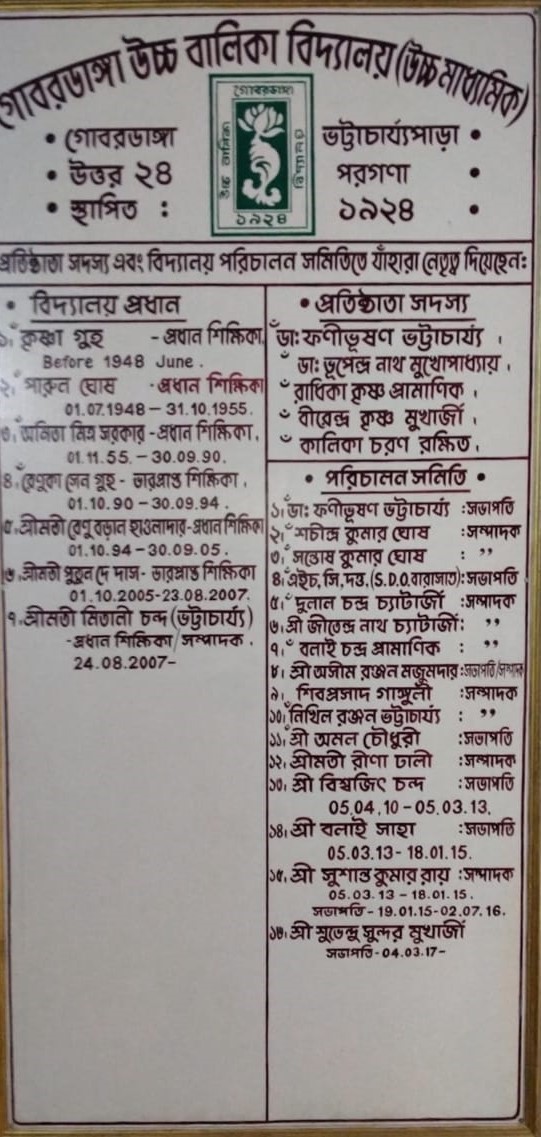 গোবরডাঙ্গা উচ্চ বালিকা বিদ্যালয় (উচ্চ মাধ্যমিক)
গোবরডাঙ্গা
উচ্চ বালিকা
বিদ্যালয়
১৯২৪
• গোবরডাঙ্গা ভট্টাচার্য্যপাড়া •
• উত্তর ২৪ পরগণা •
• স্থাপিত : ১৯২৪ •
প্রতিষ্ঠাতা সদস্য এবং বিদ্যালয় পরিচালন সমিতিতে যাঁহারা নেতৃত্ব দিয়েছেন:
• বিদ্যালয় প্রধান
১. কৃষ্ণা গুহ - প্রধান শিক্ষিকা,
Before 1948 June .
২. পারুল ঘোষ - প্রধান শিক্ষিকা
01.07.1948 – 31.10.1955.
৩. অনিতা মিত্র সরকার - প্রধান শিক্ষিকা,
01.11.55. – 30.09.90.
৪. রেণুকা সেন গুহ - ভারপ্রাপ্ত শিক্ষিকা,
01.10.90 – 30.09.94.
৫. শ্রীমতী রেণু বড়াল হাওলাদার - প্রধান শিক্ষিকা
01.10.94 – 30.09.05.
৬. শ্রীমতী পুতুল দে দাস - ভারপ্রাপ্ত শিক্ষিকা
01.10.2005-23.08.2007.
৭. শ্রীমতী মিতালী চন্দ (ভট্টাচার্য্য)
- প্রধান শিক্ষিকা/সম্পাদক.
24.08.2007–
• প্রতিষ্ঠাতা সদস্য
ডা: ফণীভূষণ ভট্টাচার্য্য ,
ঁ ডা: ভূপেন্দ্র নাথ মুখোপাধ্যায় ,
ঁ রাধিকা কৃষ্ণ প্রামাণিক ,
ঁ বীরেন্দ্র কৃষ্ণ মুখার্জী ,
ঁ কালিকা চরণ রক্ষিত .
• পরিচালন সমিতি •
১. ডা: ফণীভূষণ ভট্টাচার্য্য : সভাপতি
২. ঁ শচীন্দ্র কুমার ঘোষ : সম্পাদক
৩. ঁ সন্তোষ কুমার ঘোষ : ,,
৪. এইচ, সি, দত্ত, (S.D.O. বারাসাত) : সভাপতি
৫. ঁ দুলাল চন্দ্র চ্যাটার্জী : সম্পাদক
৬. শ্রী জীতেন্দ্র নাথ চ্যাটার্জী : ,,
৭. ঁ বলাই চন্দ্র প্রামাণিক : ,,
৮। শ্রী অসীম রঞ্জন মজুমদার : সভাপতি/সম্পাদক
৯. শিবপ্রসাদ গাঙ্গুলী : সম্পাদক
১০. নিখিল রঞ্জন ভট্টাচার্য্য : ,,
১১. শ্রী অমল চৌধুরী : সভাপতি
১২. শ্রীমতী রীণা ঢালী : সম্পাদক
১৩. শ্রী বিশ্বজিৎ চন্দ : সভাপতি
05.04.10 – 05.03.13.
১৪. শ্রী বলাই সাহা : সভাপতি
05.03.13- 18.01.15.
১৫. শ্রী সুশান্ত কুমার রায় : সম্পাদক
05.03.13 – 18.01.15.
সভাপতি - 19.01.15-02.07.16.
১৬. শ্রী শুভেন্দু সুন্দর মুখার্জী
সভাপতি - 04.03.17–